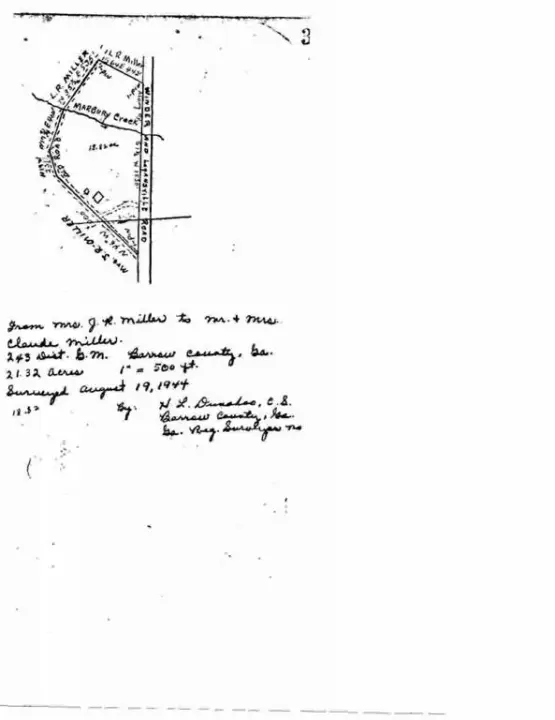 3
L.R. Miller
L.R. MILLER
MARBURY Creek
OLD ROAD
WINDER AND LOGANSVILLE ROAD
MRS. J.R. MILLER
From Mrs. J. R. Miller to Mr. + Mrs.
Claude Miller.
243 Dist. G.M. Barrow County, Ga.
21.32 acres 1" = 500 ft.
Surveyed August 19, 1944
18.82
By: H. L. Dunahoo, C.S.
Barrow County, Ga.
Ga. Reg. Surveyor no